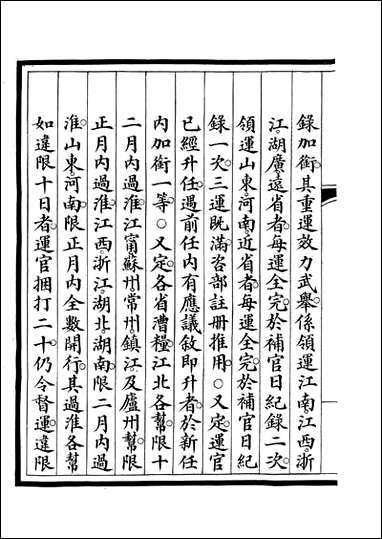 錄加銜其重運效力武舉係領運江南江西浙
江湖廣遠省者每運全完於補官日紀錄二次
領運山東河南近省者每運全完於補官日紀
錄一次三運既滿咨部註册推用○又定運官
已經升任遇前任内有應議敘即升者於新任
内加銜一等○又定各省漕糧江北各幫限十
二月内過淮江甯蘇州常州鎮江及廬州幫限
正月内過淮江西浙江湖北湖南限二月内過
淮山東河南限正月内全數開行其過淮各幫
如違限十日者運官捆打二十仍令督運違限